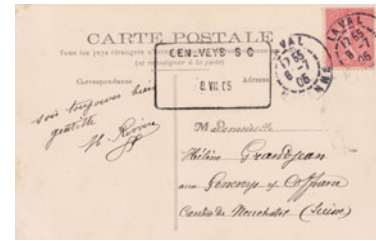 CARTE POSTALE
Tous les pays étrangers
(se renseigner à la poste)
GEN.VEYS S C
8. VII 05
LAVAL
17 55
8 - 7
05
LAVAL
17 55
8 - 7
05
Correspondance
Adresse
sois toujours bien
gentille
Mademoiselle
Hélène Grandjean
aux Geneveys s/ Coffrane
Canton de Neuchatel (Suisse)